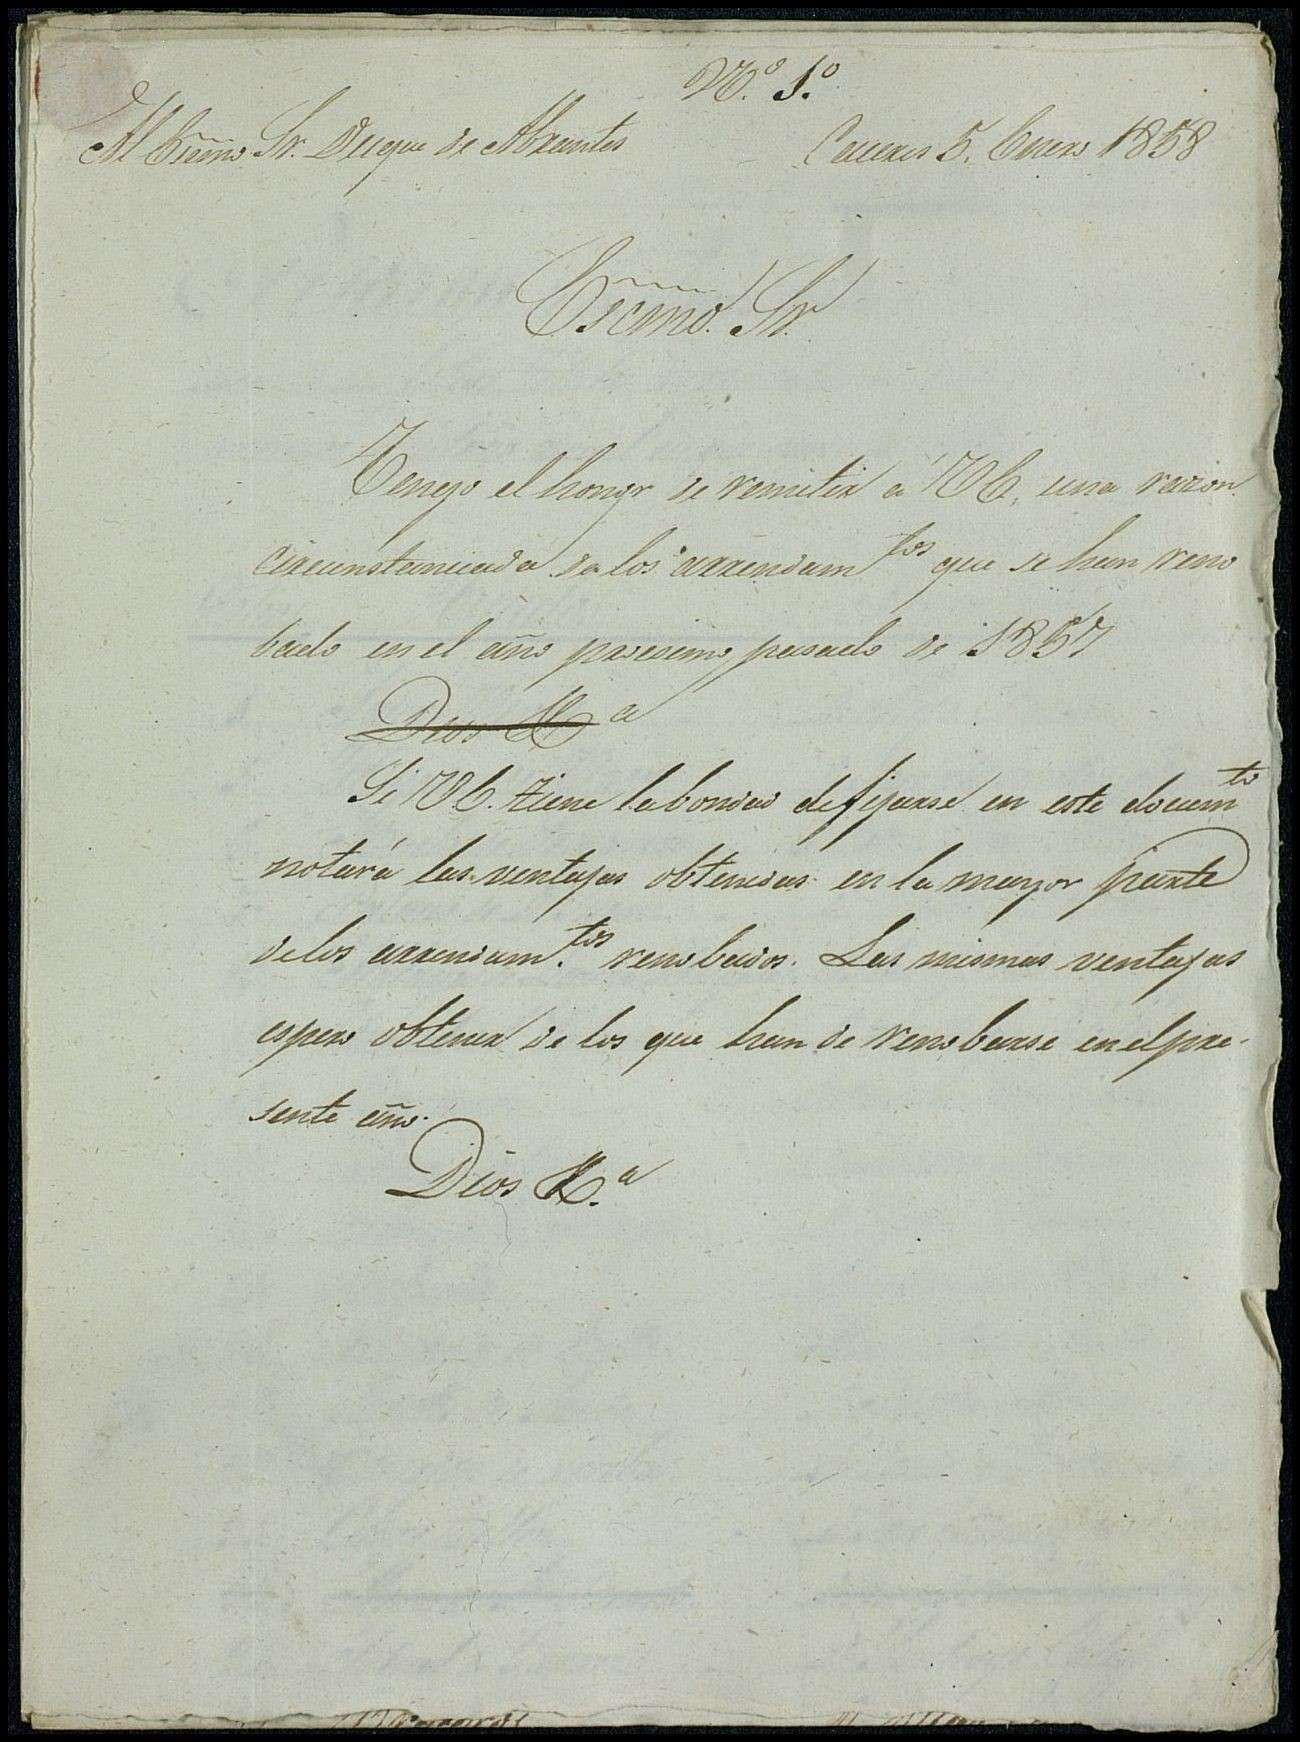 N.º 1.º
Al Escmo Sr. Duque de Abrantes
Caceres 5. Enero 1858
Escmo. Sr.
Tengo el honor de remitir á VE, una razon
circunstanciada de los arrendam.tos que se han reno
bado en el año procsimo pasado de 1857
Dios &.a
Si VE. tiene la bondad de fijarse en este docum.to
notará las ventajas obtenidas en la mayor parte
de los arrendam.tos renobados. Las mismas ventajas
espero obtener de los que han de renobarse en el pre-
sente año.
Dios &.a